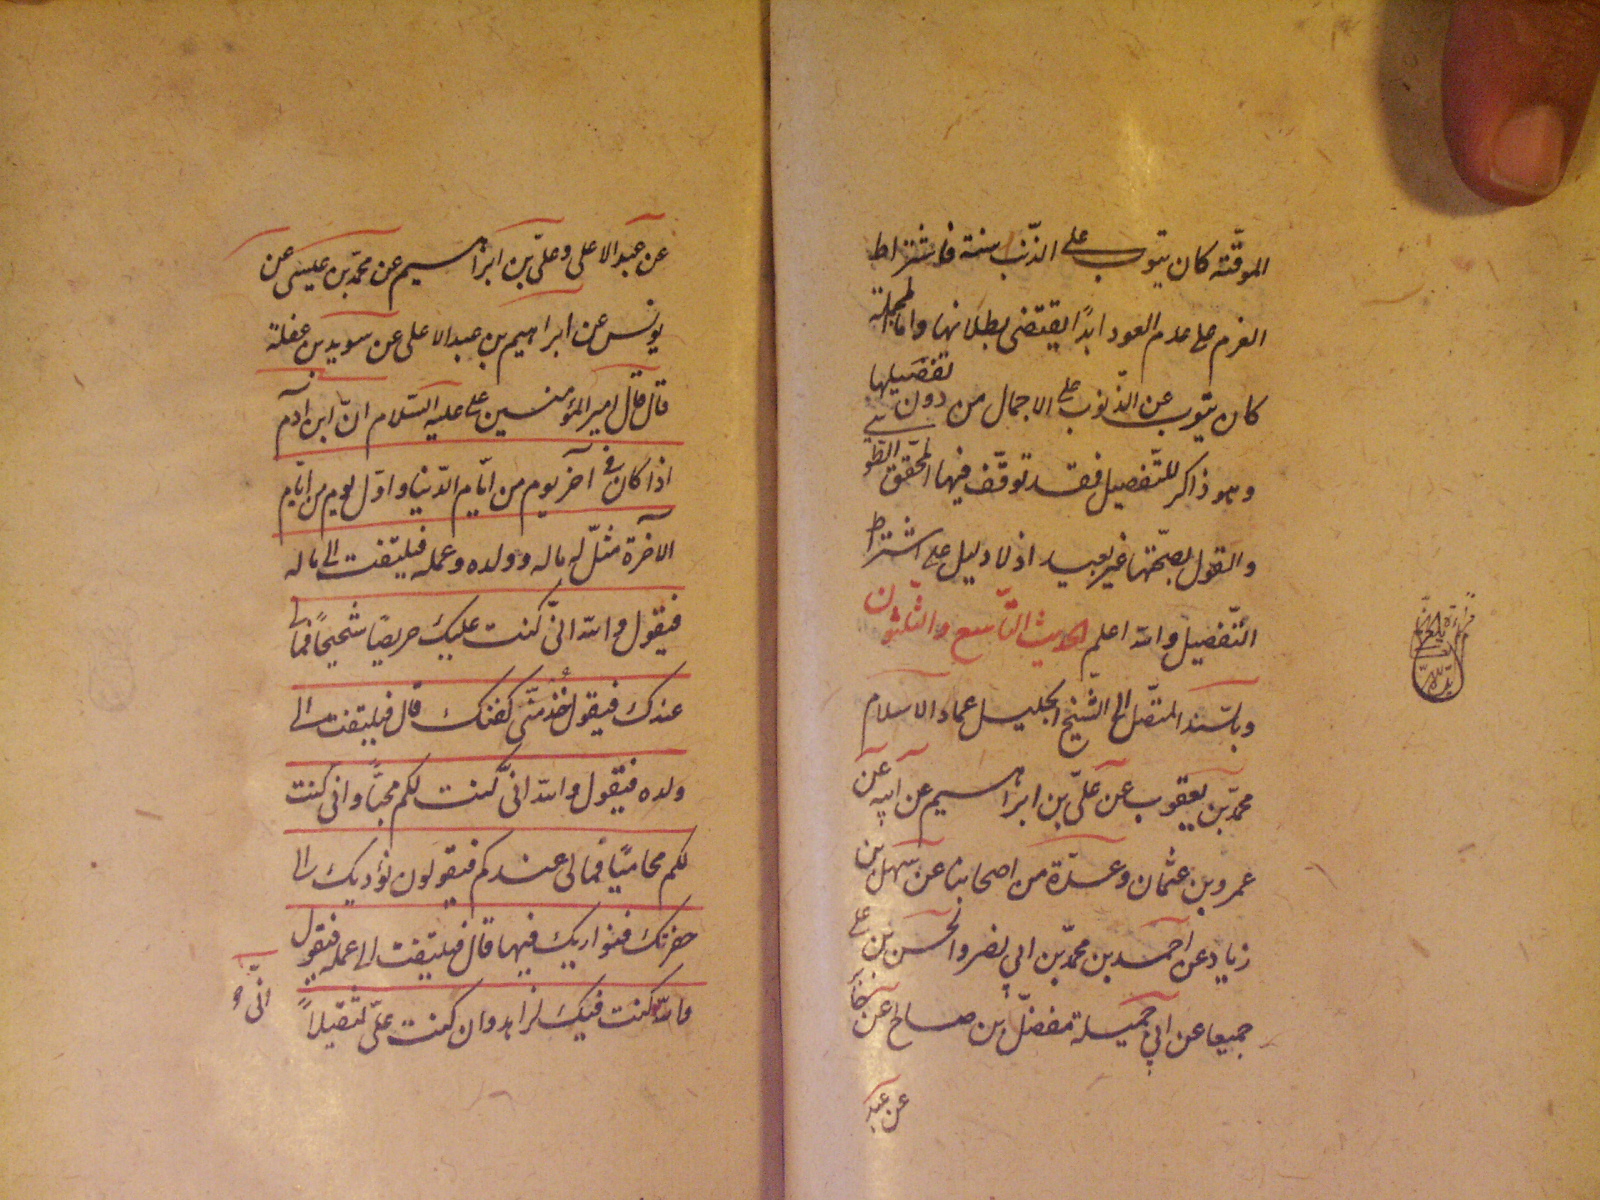 الموقّته كان يتوب على الذّنب سنة فاشتراط
العزم على عدم العود ابدًا يقتضى بطلانها واما المجملة
كان يتوب عن الذّنوب على الاجمال من دون تفصيلها
وهو ذاكر للتّفصيل فقد توقّف فيها المحقّق الطو
سى
والقول بصحّتها غير بعيد اذ لا دليل على اشتراط
التّفصيل والله اعلم الحديث التّاسع والثّلثون
وبالسّند المتّصل الى الشّيخ الجليل عماد الاسلام
محمّد بن يعقوب عن علىّ بن ابراهيم عن ابيه عن
عمرو بن عثمان وعدّة من اصحابنا عن سهل بن
زياد عن احمد بن محمّد بن ابي نصر والحسن بن على
جميعا عن ابي جميلة مفضّل بن صالح عن جابر
عن عبد
عن عبد الاعلى وعلىّ بن ابراهيم عن محمّد بن عيسى عن
يونس عن ابراهيم بن عبد الاعلى عن سويد بن غفلة
قال قال امير المؤمنين على عليه السّلام انّ ابن آدم
اذا كان فى آخر يوم من ايّام الدّنيا واوّل يوم من ايّام
الآخرة مثّل له ماله وولده وعمله فيلتفت الى ماله
فيقول والله انّى كنت عليك حريصًا شحيحًا فمالى
عندك فيقول خُذ منّى كفنك قال فيلتفت الى
ولده فيقول والله انّى كنت لكم محبًّا وانى كنت
لكم محاميًا فمالى عندكم فيقولون نؤدّيك الى
حفرتك فنواريك فيها قال فيلتفت الى عمله فيقول
والله كنت فيك لزاهد وان كنت علىّ لثقيلاً
انّى و